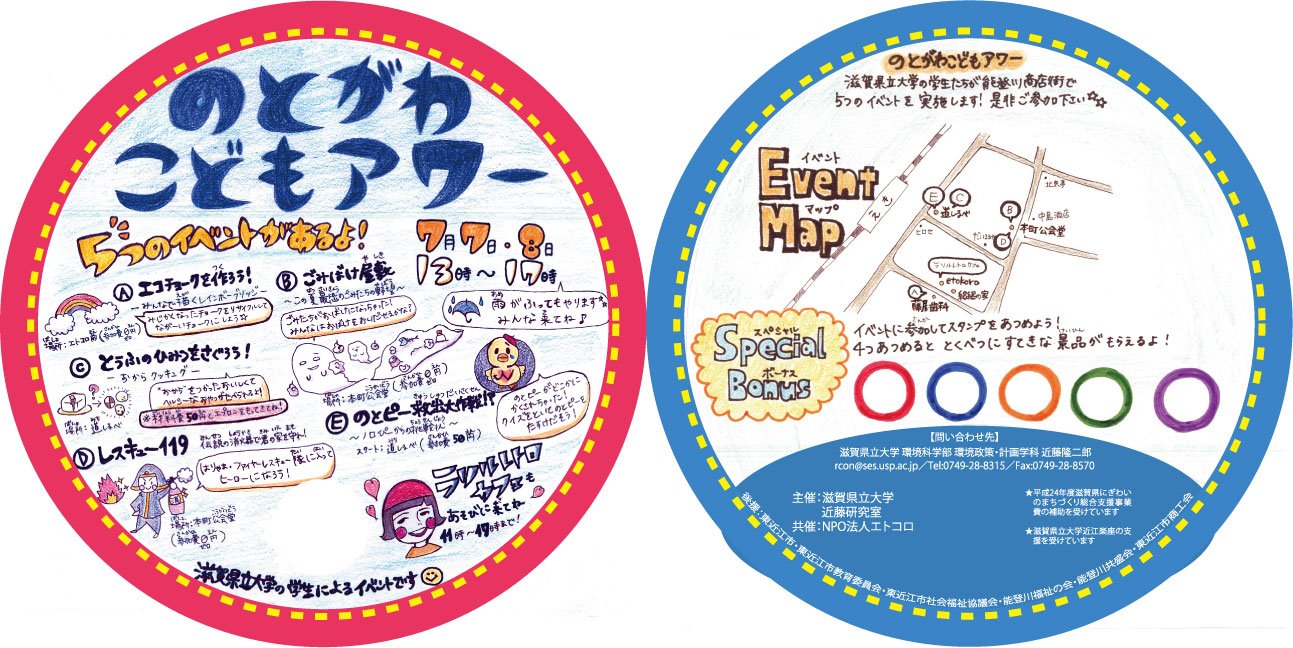 のとがわ
こどもアワー
5つのイベントがあるよ!
7月7日・8日
13時〜17時
雨がふってもやります
みんな来てね♪
Ⓐ エコチョークを作ろう!
〜みんなで描くレインボーブリッジ〜
みじかくなったチョークをリサイクルして
ながーいチョークにしよう☆
場所:エトコロ前(参加費0円)
Ⓑ ごみばけ屋敷
〜この夏最恐のごみたちの
ごみたちがおばけになっちゃった!
みんなはおばけをおいだせるかな?
場所:本町公会堂
(参加費0円)
Ⓒ とうふのひみつをさぐろう!
〜おからクッキング〜
"おから"をつかったおいしくて
ヘルシーなおやつがたべられるよ!
※材料費50円とエプロンをもってきてね!
場所:道しるべ
Ⓓ レスキュー119
伝説の消火器で君の家を守れ!
はりゅま・ファイヤーレスキュー隊に入って
ヒーローになろう!
場所:本町公会堂
(参加費0円)
Ⓔ のとピー救出大作戦!?
〜ノロぴーからの挑戦状〜
スタート:道しるべ(参加費50円)
のとピーがどこかに
かくされちゃった!
クイズをといてのとピーを
たすけだそう!
ラリルレトロ
カフェも
あそびに来てね
11時〜17時まで!
滋賀県立大学の学生によるイベントです
のとがわこどもアワー
滋賀県立大学の学生たちが能登川商店街で
5つのイベントを実施します!是非ご参加下さい☆☆
イベント
Event
マップ
Map
えき
E
C
道しるべ
B
本町公会堂
D
北京亭
中島酒店
ヒロセ
だいはち
ラリルレトロカフェ
etokoro
結結の家
A
藤居歯科
スペシャル
Special
ボーナス
Bonus
イベントに参加してスタンプをあつめよう!
4つあつめると とくべつに すてきな 景品が もらえるよ!
【問い合わせ先】
滋賀県立大学 環境科学部 環境政策・計画学科 近藤隆二郎
rcon@ses.usp.ac.jp/Tel:0749-28-8315/Fax:0749-28-8570
主催:滋賀県立大学
近藤研究室
共催:NPO法人エトコロ
★平成24年度滋賀県にぎわい
のまちづくり総合支援事業
費の補助を受けています
★滋賀県立大学近江楽座の支
援を受けています
後援:東近江市・東近江市教育委員会・東近江市社会福祉協議会・能登川福祉の会・能登川共盛会・東近江市商工会